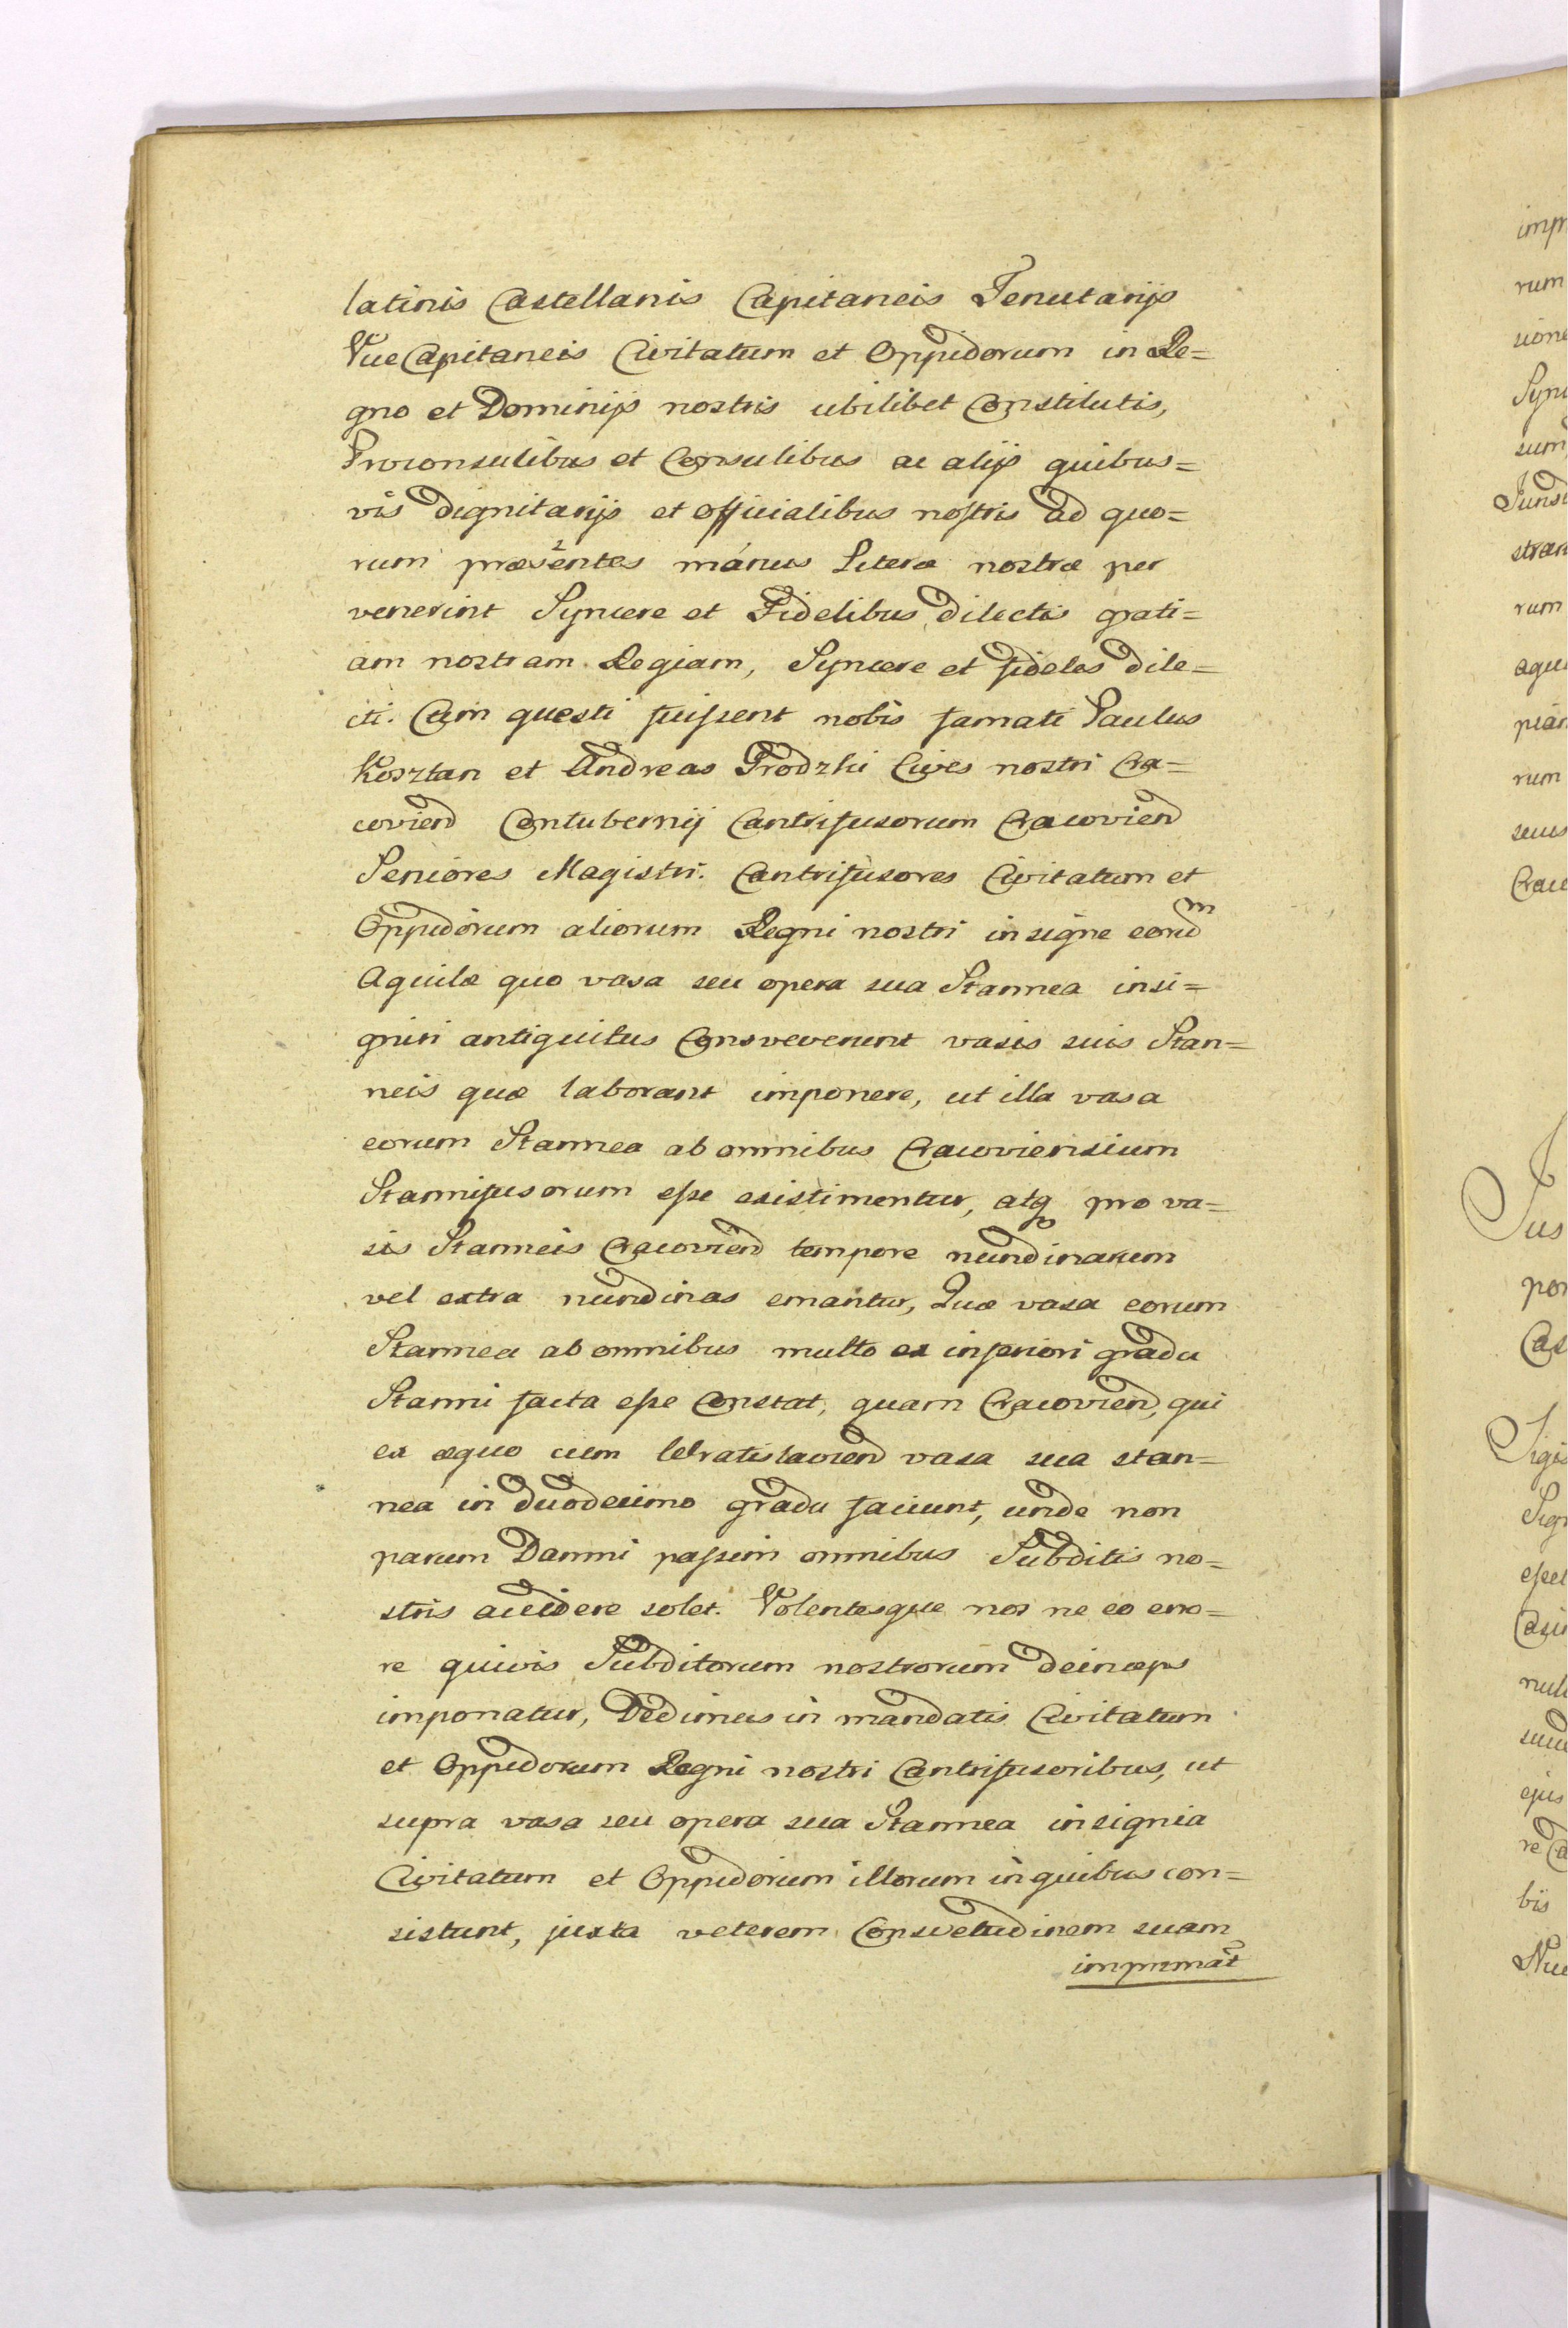 latinis Castellanis Capitaneis Tenutarijs
Vice Capitaneis Civitatum et Oppidorum in Re=
gno et Dominijs nostris ubilibet Constitutis,
Proconsulibus et Consulibus ac alijs quibus=
vis dignitarijs et officialibus nostris ad quo=
rum præsentes manus Literæ nostræ per
venerint Syncere et Fidelibus dilectis grati=
am nostram Regiam, Syncere et fideles dile=
cti. Cum questi fuissent nobis famati Paulus
Kosztan et Andreas Grodzki Cives nostri Cra=
coviend Contubernij Cantrifusorum Cracoviend
Seniores Magistri. Cantrifusores Civitatum et
Oppidorum aliorum Regni nostri insigne eorud^m
Aquilæ quo vasa seu opera sua Stannea insi=
gniri antiquitus Consveverunt vasis suis Stan=
neis quæ laborant imponere, ut illa vasa
eorum Stannea ab omnibus Cracoviensium
Stannifusorum esse existimentur, atq pro va=
sis Stanneis Cracoviend tempore nundinarum
vel extra nundinas emantur, Quæ vasa eorum
Stannea ab omnibus multo ex inferiori gradu
Stanni facta esse Constat, quam Cracoviend, qui
ex æquo cum Wratislaviend vasa sua stan=
nea in duodecimo gradu faciunt, unde non
parum Damni passim omnibus Subditis no=
stris accidere solet. Volentesque nos ne eo erro=
re quivis Subditorum nostrorum deinceps
imponatur, Dedimus in mandatis Civitatum
et Oppidorum Regni nostri Cantrifusoribus, ut
supra vasa seu opera sua Stannea insignia
Civitatum et Oppidorum illorum in quibus con=
sistunt, juxta veterem Consvetudinem suam
impnmat
imp
rum
sione
Syn
sum
stran
rum
aqui
pian
rum
seus
Crac
Jus
por
Cas
Sigis
Sig
esset
nul
ejus
re
bis